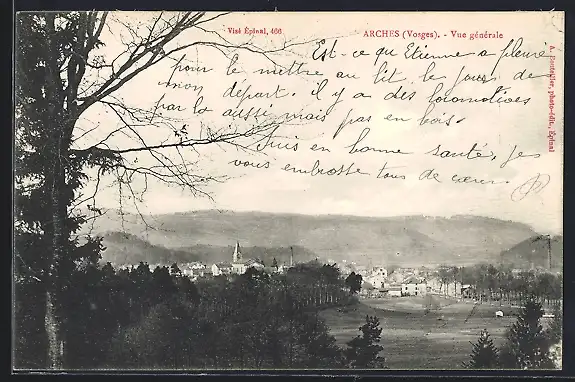 Visé Épinal, 466
ARCHES (Vosges). - Vue générale
Est-ce qu'Etienne a pleuré
pour le mettre au lit le jour de
mon départ. il y a des locomotives
par la aussi mais pas en bois.
suis en bonne santé. Je
vous embrasse tous de cœur.
A. Bontellier, photo-édit., Épinal